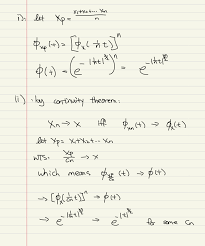 i). let Xp = x₁+x₂+... xn / n
ϕxp(t) = [ϕx(1/n t)]ⁿ
ϕ(t) = (e^-|1/n t|^)ⁿ = e^-|1/n t|
(ii) · by continuity theorem:
Xn → x iff ϕxn(t) → ϕx(t)
let Xp = x₁+x₂+... xn
WTS: Xp/cn → x
which means ϕ (t) → ϕ(t)
→ [ϕx(1/cn t)]ⁿ → ϕ(t)
→ e → e for some cn